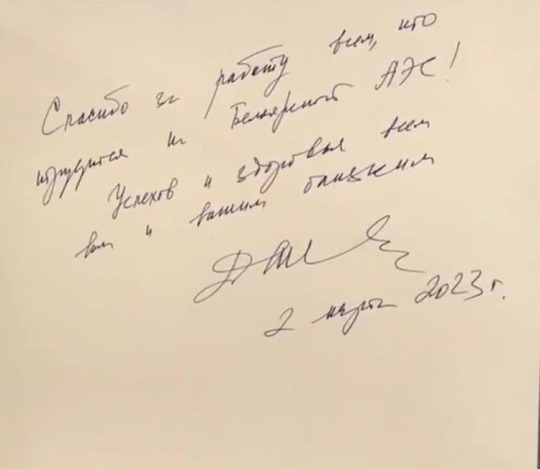 Спасибо за работу всем, кто
трудится на Белоярской АЭС!
Успехов и здоровья всем
вам и вашим близким
2 марта 2023 г.